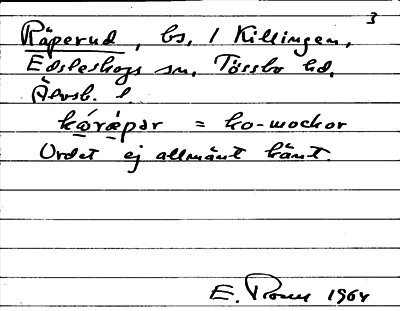 3
Råperud, bs, / Killingen,
Edsleskogs sn, Tössbo hd,
Älvsb. l.
kǿrǽpər = ko-mockor
Ordet ej allmänt känt.
E. 1964